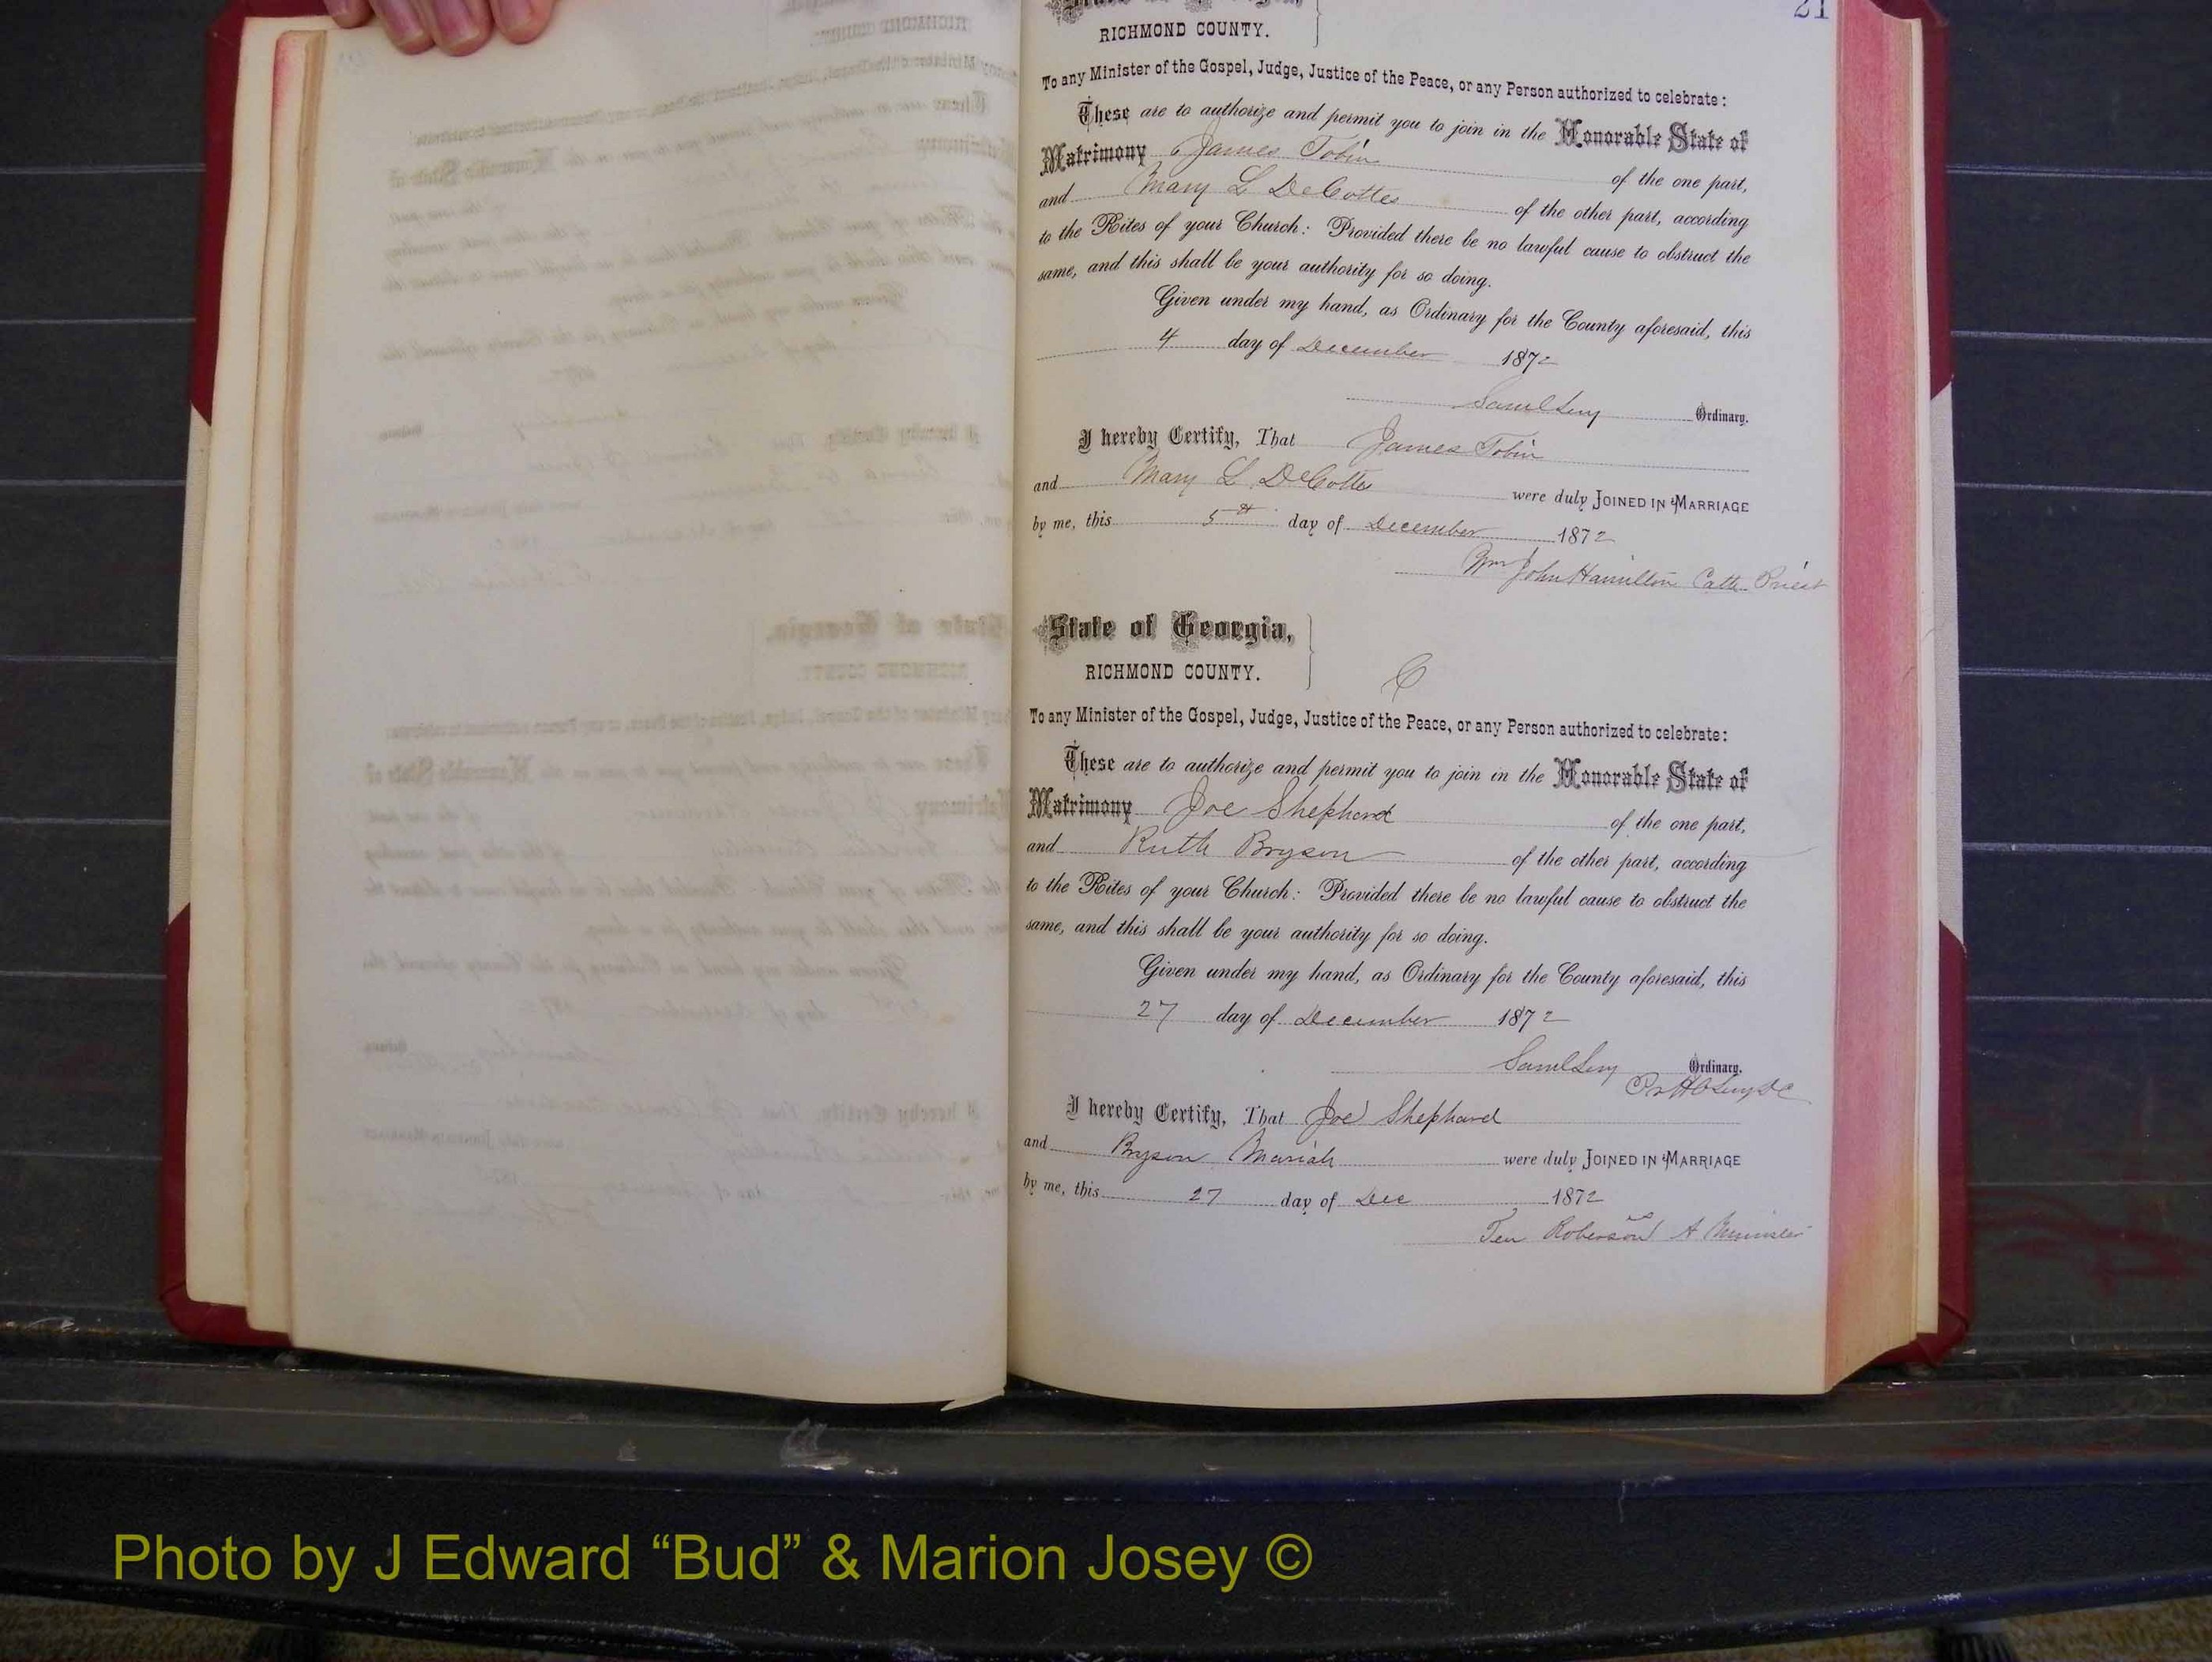 21
State of Georgia,
RICHMOND COUNTY.
To any Minister of the Gospel, Judge, Justice of the Peace, or any Person authorized to celebrate:
These are to authorize and permit you to join in the Honorable State of
Matrimony James Tobin of the one part,
and Mary L DeCottes of the other part, according
to the Rites of your Church: Provided there be no lawful cause to obstruct the
same, and this shall be your authority for so doing.
Given under my hand, as Ordinary for the County aforesaid, this
4 day of December 1872
Saml Levy Ordinary.
I hereby Certify, That James Tobin
and Mary L DeCottes were duly JOINED IN MARRIAGE
by me, this 5th day of December 1872
Wm John Hamilton Cath Priest
State of Georgia,
RICHMOND COUNTY.
C
To any Minister of the Gospel, Judge, Justice of the Peace, or any Person authorized to celebrate:
These are to authorize and permit you to join in the Honorable State of
Matrimony Joe Shephard of the one part,
and Ruth Bryson of the other part, according
to the Rites of your Church: Provided there be no lawful cause to obstruct the
same, and this shall be your authority for so doing.
Given under my hand, as Ordinary for the County aforesaid, this
27 day of December 1872
Saml Levy Ordinary.
I hereby Certify, That Joe Shephard
and Bryson Mariah were duly JOINED IN MARRIAGE
by me, this 27 day of Dec 1872
Roberson A Minister
Photo by J Edward “Bud” & Marion Josey ©